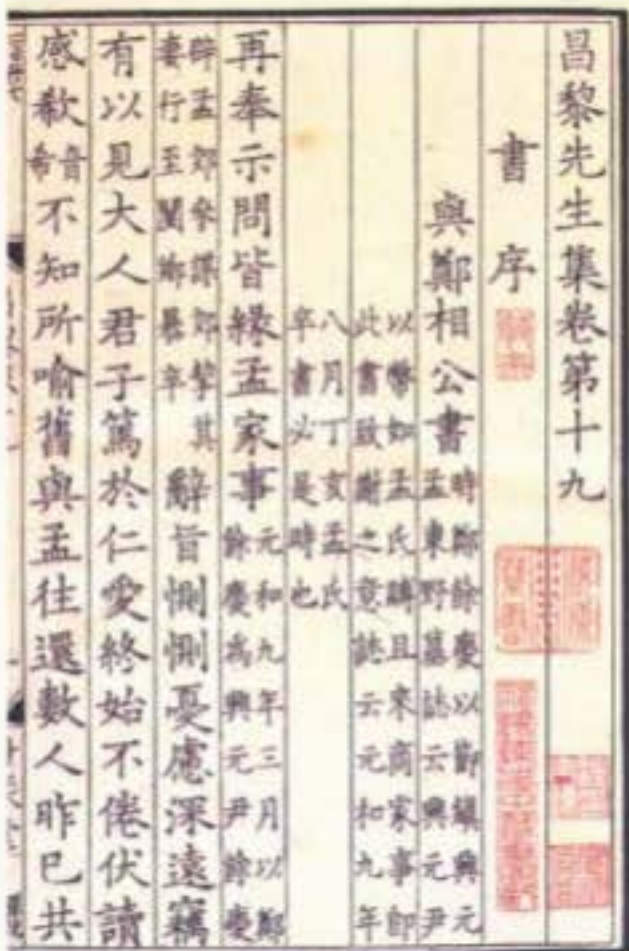 昌黎先生集卷第十九
書 序
與鄭相公書時鄭餘慶以節鎮興元孟東野墓誌云興元尹
以幣如孟氏賻且來商家事即此書致謝之意誌云元和九年
八月丁亥孟氏卒書必是時也
再奉示問皆緣孟家事元和九年三月以鄭餘慶為興元尹餘慶
辟孟郊參謀郊挈其妻行至閿鄉暴卒辭旨惻惻憂慮深遠竊
有以見大人君子篤於仁愛終始不倦伏讀
感欷音希不知所喻舊與孟往還數人昨已共